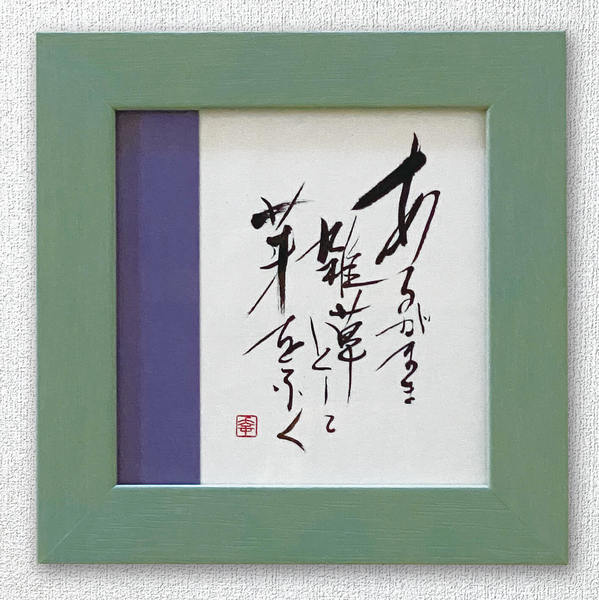 あるがまま
雑草として
芽をふく